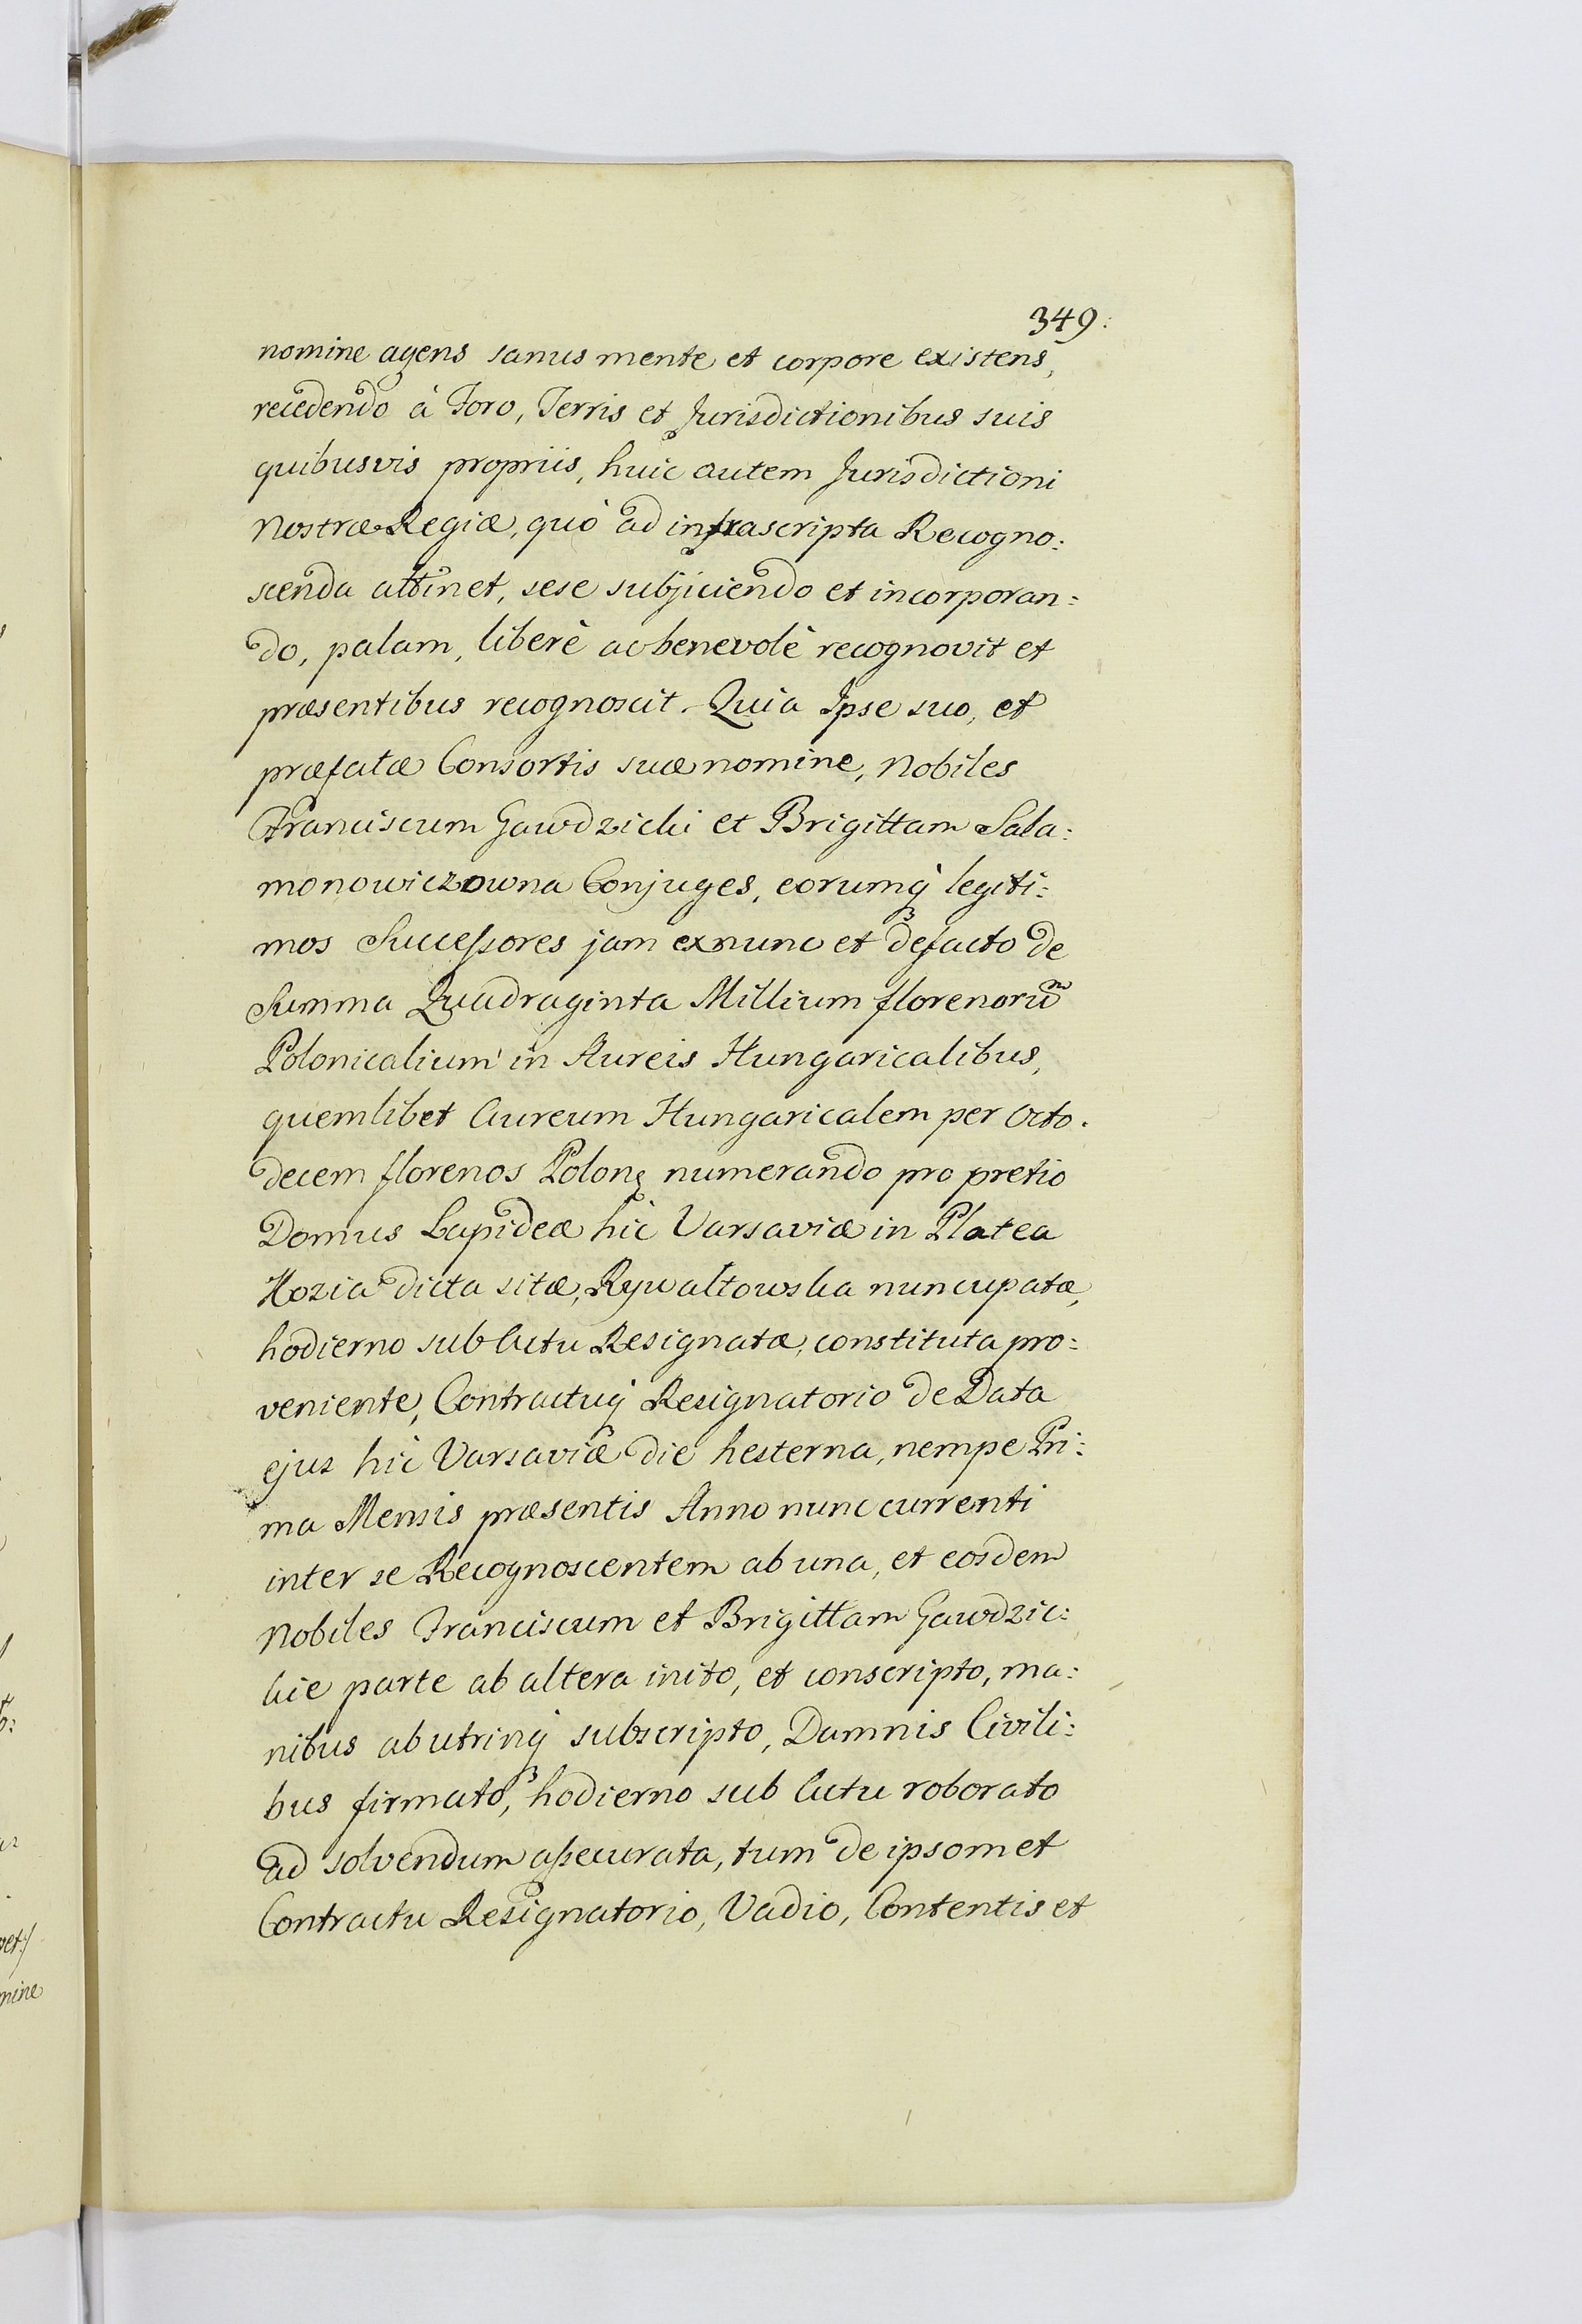 349:
nomine agens sanus mente et corpore existens,
recedendo à Foro, Terris et Jurisdictionibus suis
quibusvis propriis, huic autem Jurisdictioni
Nostræ Regiæ, quò ad infrascripta Recogno:
scenda attinet, sese subjiciendo et incorporan:
do, palam, liberè ac benevolè recognovit et
præsentibus recognoscit. Quia Ipse suo, et
præfatæ Consortis suæ nomine, Nobiles
Franciscum Gawdzicki et Brigittam Sala:
monowiczowna Conjuges, eorumq́ legiti:
mos Successores jam exnunc et defacto de
Summa Quadraginta Millium florenorũ
Polonicalium in Aureis Hungaricalibus,
quemlibet Aureum Hungaricalem per Octo.
decem florenos Polonꝫ numerando pro pretio
Domus Lapideæ hic Varsaviæ in Platea
Kozia dicta sitæ, Rywaltowska nuncupatæ,
hodierno sub Actu Resignatæ, constituta pro:
veniente, Contractuq́ Resignatorio de Data
ejus hic Varsaviæ die hesterna, nempe Pri:
ma Mensis præsentis Anno nunc currenti
inter se Recognoscentem ab una, et eosdem
Nobiles Franciscum et Brigittam Gawdzic:
kie parte ab altera inito, et conscripto, ma:
nibus ab utrinq́ subscripto, Damnis Civili:
bus firmato, hodierno sub Actu roborato
ad solvendum assecurata, tum de ipsomet
Contractu Resignatorio, Vadio, Contentis et